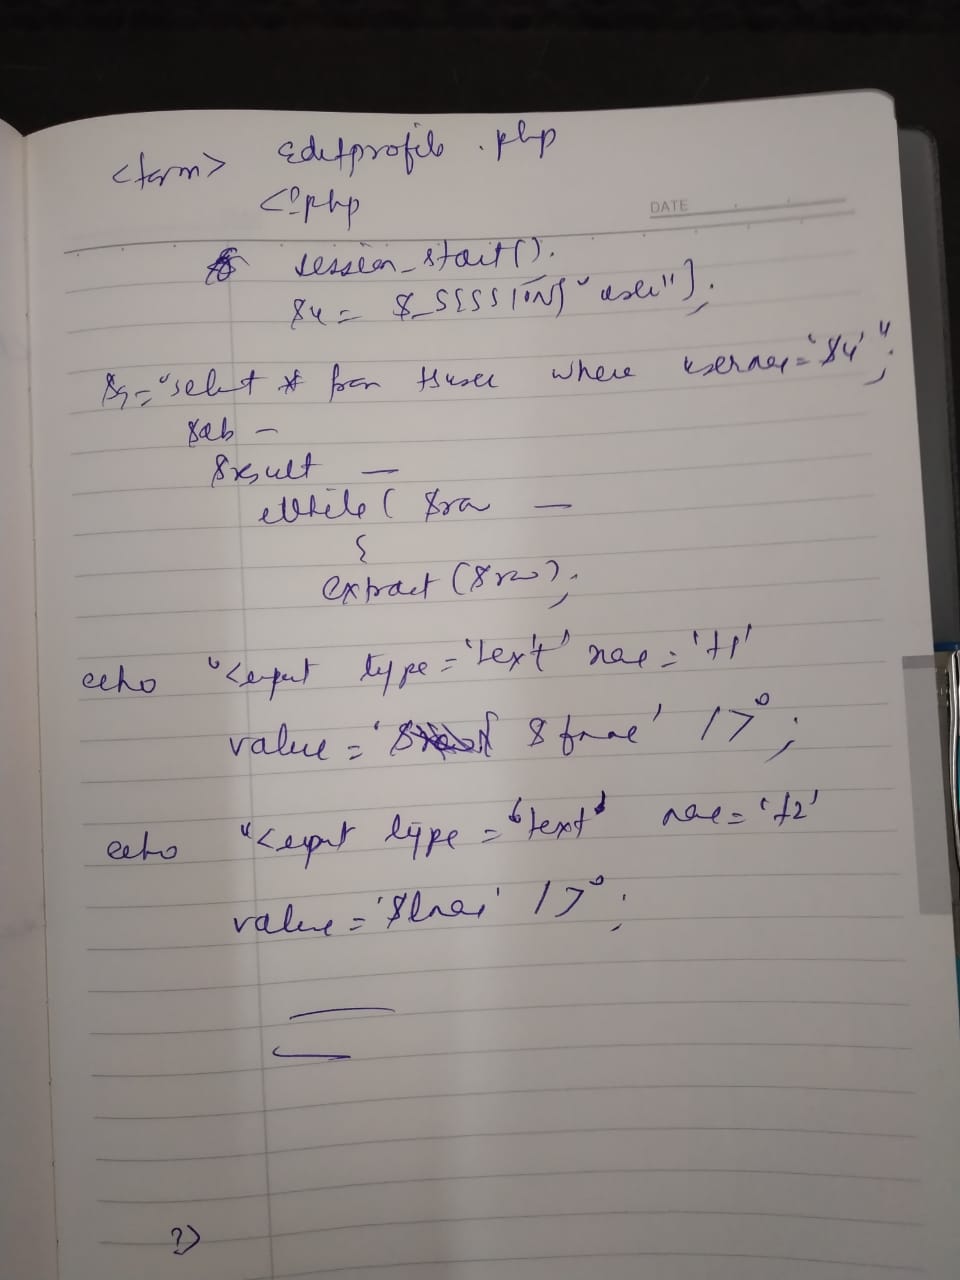 Editprofile.php
<form>
<?php
DATE
session_start().
$u = $_SESSION["user"];
$q="select * from tbuser where username='$u'";
$db —
$result —
while( $row —
{
extract($row);
echo "<input type='text' name='t1'
value='$fname' />";
echo "<input type='text' name='t2'
value='$lname' />";
?>